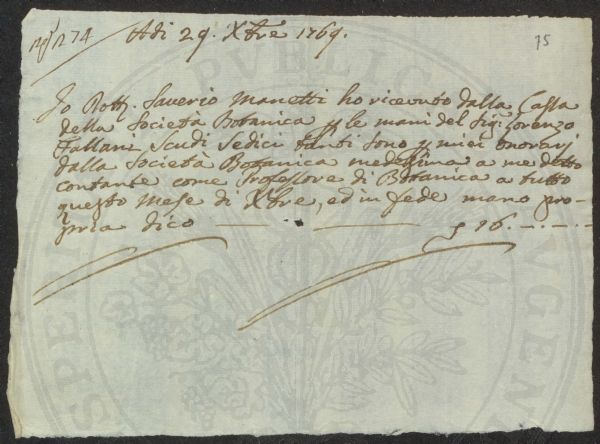 No. 274 Adi 29. Xbre 1769. 75
Io Dott. Saverio Manetti ho ricevuto dalla Cassa
della Società Botanica p le mani del Sig: Lorenzo
Fallani Scudi Sedici tanti sono p miei onorarj
dalla Società Botanica medesima a me detto
contante come Professore di Botanica a tutto
questo Mese di Xbre, ed in fede mano pro-
pria dico — — 16. — . — . —
PUBLIC